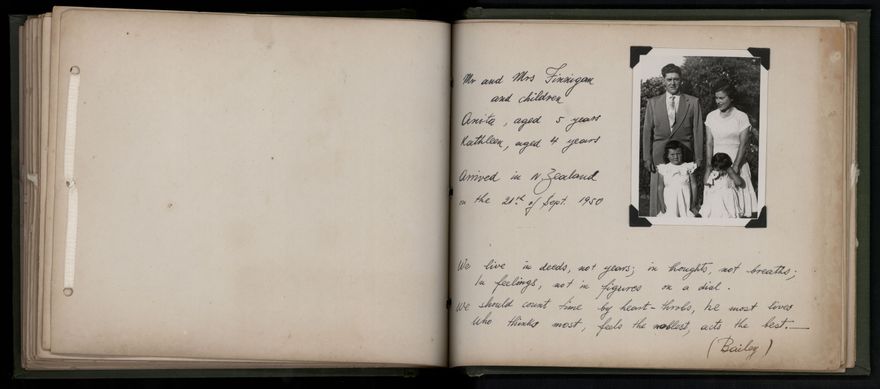 Mr and Mrs Finnigan
and children
Anita, aged 5 years
Kathleen, aged 4 years
Arrived in N. Zealand
on the 21st of Sept. 1950
We live in deeds, not years; in thoughts, not breaths;
In feelings, not in figures on a dial.
We should count time by heart-throbs, he most lives
Who thinks most, feels the noblest, acts the best.—
(Bailey)